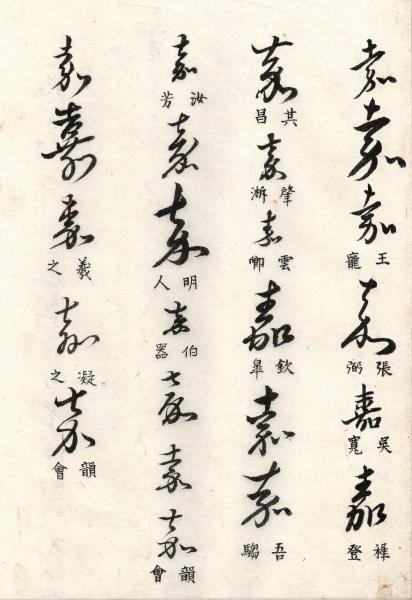 嘉嘉嘉王寵嘉張弼嘉吳寬嘉穉登
嘉其昌嘉肇淛嘉雲卿嘉欽皐嘉嘉吾騶
嘉汝芳嘉嘉明人嘉伯器嘉嘉嘉韻會
嘉嘉嘉羲之嘉凝之嘉韻會